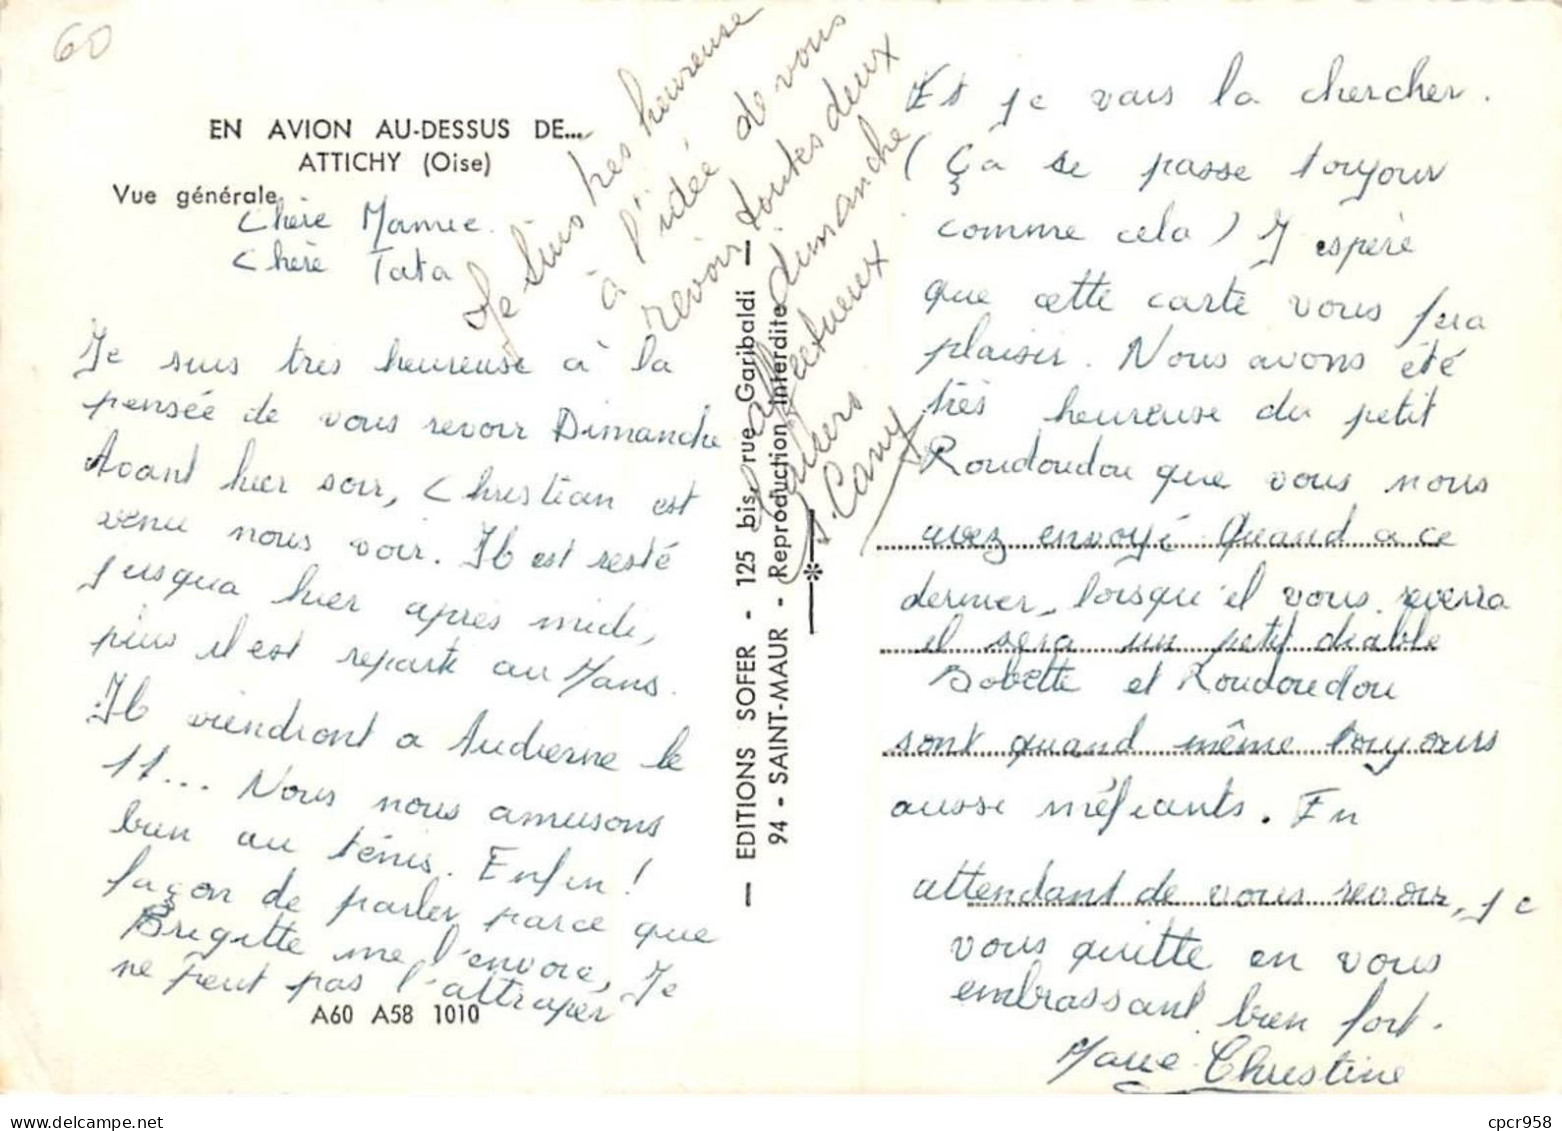 60
EN AVION AU-DESSUS DE...
ATTICHY (Oise)
Vue générale
Chère Mamie.
Chère Tata
Je suis très heureuse à la
pensée de vous revoir Dimanche
Avant hier soir, Christian est
venu nous voir. Il est resté
jusqua hier après midi,
puis il est reparti au Mans.
Ils viendront a Audierne le
11... Nous nous amusons
bien au ténis. Enfin!
façon de parler parce que
Brigitte me l'envoie, Je
ne peut pas l'attraper
A60 A58 1010
Je suis très heureuse
à l'idée de vous
revoir toutes deux
dimanche
affectueux
baisers
— EDITIONS SOFER - 125 bis, rue Garibaldi —
94 - SAINT-MAUR - Reproduction Interdite
Et je vais la chercher.
(Ça se passe toujour
comme cela) J'espère
que cette carte vous fera
plaisir. Nous avons été
très heureuse du petit
Roudoudou que vous nous
avez envoyé Quand a ce
dernier, lorsqu'il vous reverra
il sera un petit diable
Bobette et Roudoudou
sont quand même toujours
aussi méfiants. En
attendant de vous revoir, je
vous quitte en vous
embrassant bien fort.
Marie Christine
cpcr958